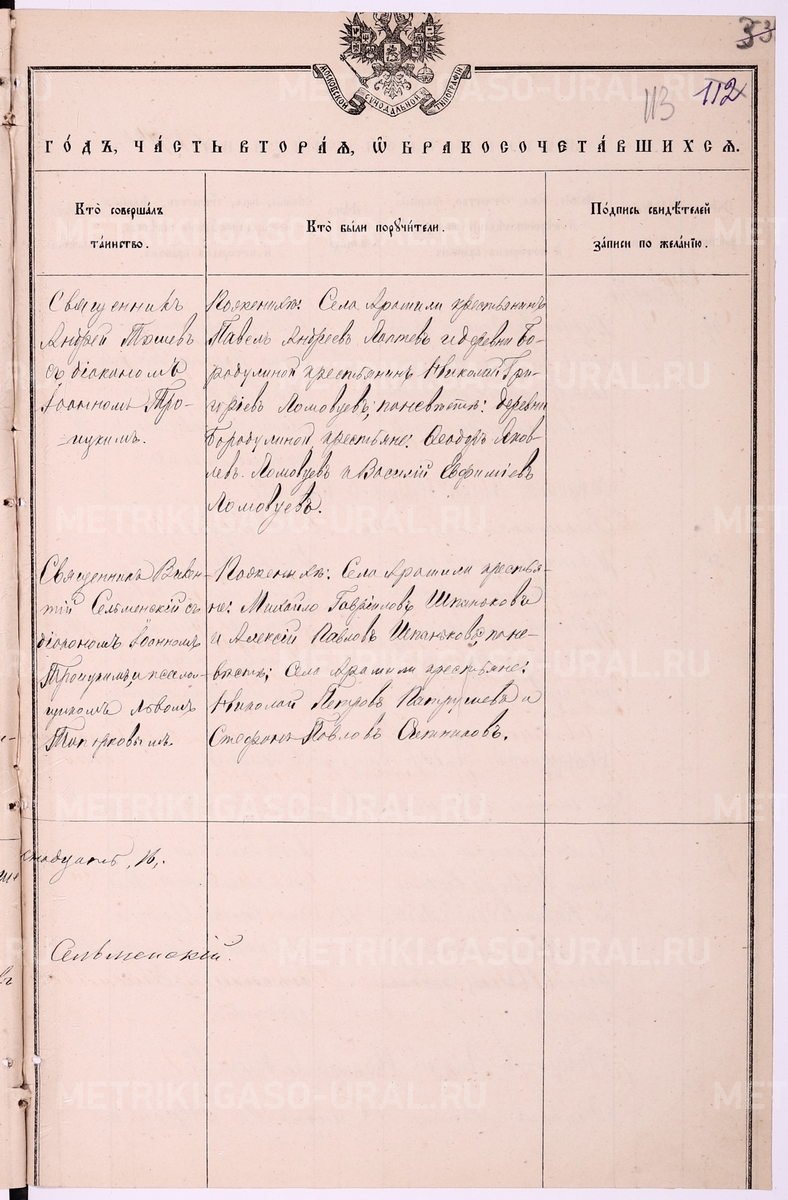 МОСКОВСКОЙ СѴНОДАЛЬНОЙ ТИПОГРАФІИ
33
113 112
ГО́ДЪ, ЧА́СТЬ ВТОРА́Я, Ѡ҆ БРАКОСОЧЕТА́ВШИХСЯ.
Кто̀ соверша́лъ
та́инство.
Кто̀ бы́ли порꙋчи́тели.
По́дпись свидѣ́телей
за́писи по жела́нїю.
Священникъ
Андрей
съ діакономъ
Іоанномъ Тро-
ицкимъ.
По женихѣ: Села Арамили крестьянинъ
Павелъ Андреевъ Лаптевъ и деревни Бо-
родулиной крестьянинъ Николай Гри-
горіевъ Ломовцевъ; по невѣстѣ: деревни
Бородулиной крестьяне: Ѳеодоръ Яков
левъ Ломовцевъ и Василій Евфиміевъ
Ломовцевъ.
Священникъ Викен-
тій Сельменскій съ
діакономъ Іоанномъ
Троицкимъ и псалом
щикомъ Львомъ
По женихѣ: Села Арамили крестья-
не: Михайло Гавріиловъ Шпаньковъ
и Алексій Павловъ Шпаньковъ; по не-
вѣстѣ: Села Арамили крестьяне:
Николай Петровъ Патрушевъ и
Стефанъ Павловъ
Сельменскій.
METRIKI.GASO-URAL.RU